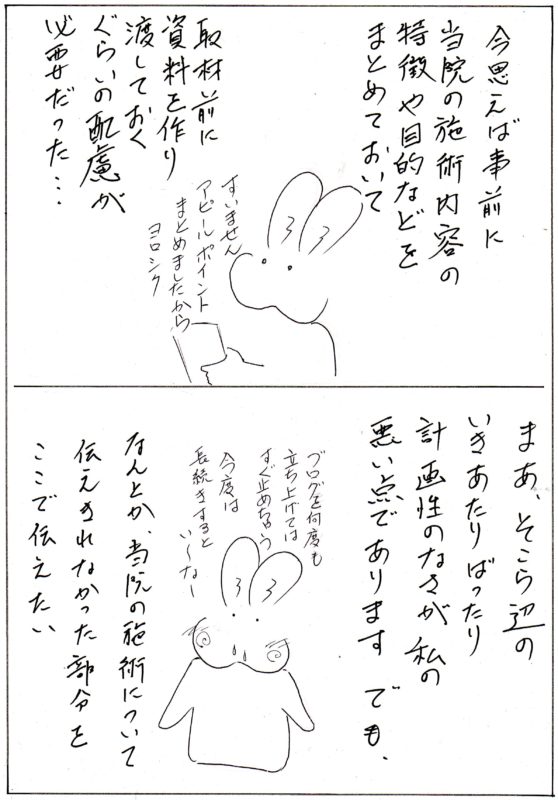 今思えば事前に
当院の施術内容の
特徴や目的などを
まとめておいて
取材前に
資料を作り
渡しておく
ぐらいの配慮が
必要だった…
すいません
アピールポイント
まとめましたから
ヨロシク
まあ、そこら辺の
いきあたりばったり
計画性のなさが私の
悪い点であります でも、
ブログを何度も
立ち上げては
すぐ止めちゃう
今度は
長続きすると
い〜なー
なんとか、当院の施術について
伝えきれなかった部分を
ここで伝えたい